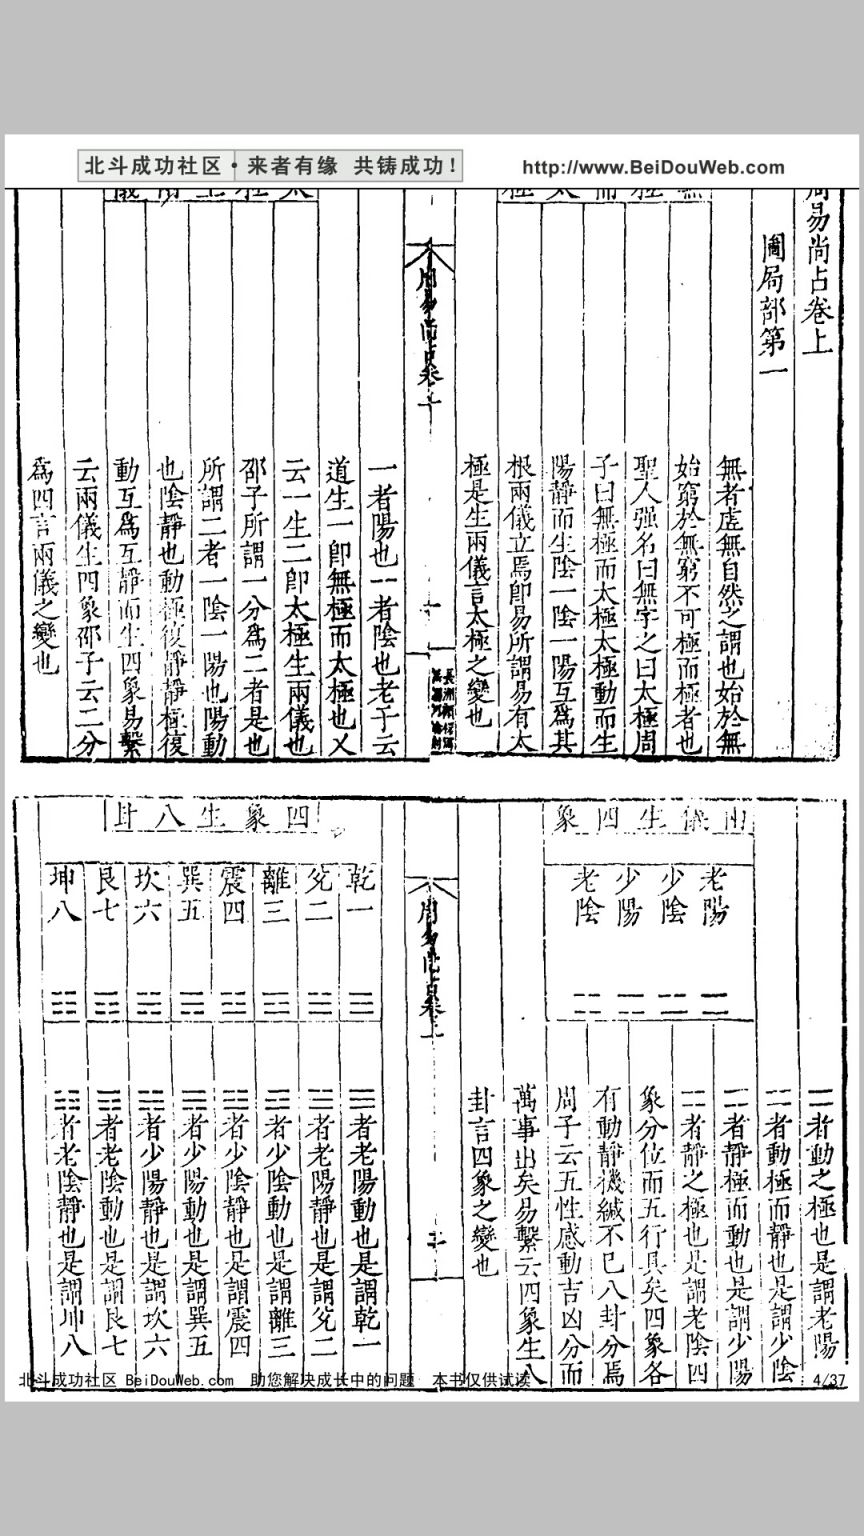 北斗成功社区·来者有缘 共铸成功！
http://www.BeiDouWeb.com
周易尚占卷上
圖局部第一
無極而太極
無者虛無自然之謂也始於無
始窮於無窮不可極而極者也
聖人强名曰無字之曰太極周
子曰無極而太極太極動而生
陽靜而生陰一陰一陽互爲其
根兩儀立焉卽易所謂易有太
極是生兩儀言太極之變也
周易尚占卷上
一
太極生兩儀
⚊者陽也⚋者陰也老子云
道生一卽無極而太極也又
云一生二卽太極生兩儀也
邵子所謂一分爲二者是也
所謂二者一陰一陽也陽動
也陰靜也動極復靜靜極復
動互爲互靜而生四象易繫
云兩儀生四象邵子云二分
爲四言兩儀之變也
兩儀生四象
老陽 ⚌
少陰 ⚍
少陽 ⚎
老陰 ⚏
⚌者動之極也是謂老陽
⚍者動極而靜也是謂少陰
⚎者靜極而動也是謂少陽
⚏者靜之極也是謂老陰四
象分位而五行具矣四象各
有動靜機緘不已八卦分焉
周子云五性感動吉凶分而
萬事出矣易繫云四象生八
卦言四象之變也
周易尚占卷上
二
四象生八卦
乾一 ☰
兌二 ☱
離三 ☲
震四 ☳
巽五 ☴
坎六 ☵
艮七 ☶
坤八 ☷
☰者老陽動也是謂乾一
☱者老陽靜也是謂兌二
☲者少陰動也是謂離三
☳者少陰靜也是謂震四
☴者少陽動也是謂巽五
☵者少陽靜也是謂坎六
☶者老陰動也是謂艮七
☷者老陰靜也是謂坤八
北斗成功社区 BeiDouWeb.com 助您解决成长中的问题 本书仅供试读
4/37